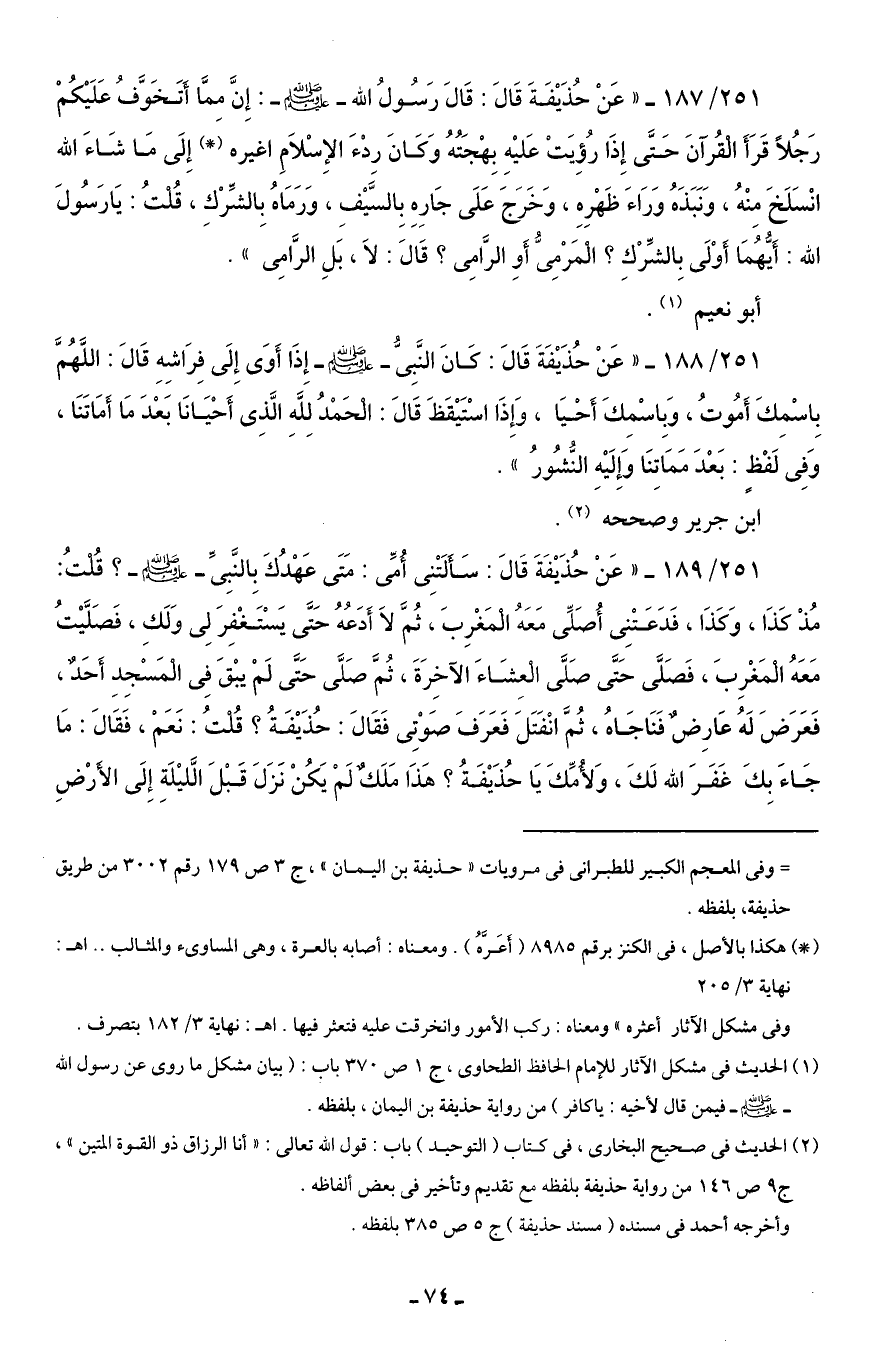 ١٨٧/٢٥١ ـ « عَنْ حُذَيْفَةَ قَالَ : قَالَ رَسُولُ الله ـ ﷺ ـ : إِنَّ مِمَّا أَتَخَوَّفُ عَلَيْكُمْ
رَجُلاً قَرَأَ الْقُرآنَ حَتَّى إِذَا رُؤِيَتْ عَلَيْهِ بِهْجَتُهُ وَكَانَ رِدْءَ الإِسْلاَمِ اغيره (*) إِلَى مَا شَاءَ الله
انْسَلَخَ مِنْهُ ، وَنَبَذَهُ وَرَاءَ ظَهْرِهِ ، وَخَرَجَ عَلَى جَارِهِ بِالسَّيْفِ ، وَرَمَاهُ بِالشِّرْكِ ، قُلْتُ : يَارَسُولَ
الله : أَيُّهُمَا أَوْلَى بِالشِّرْكِ ؟ الْمَرْمِىُّ أَوِ الرَّامِى ؟ قَالَ : لاَ ، بَلِ الرَّامِى » .
أبو نعيم (١) .
١٨٨/٢٥١ ـ « عَنْ حُذَيْفَةَ قَالَ : كَانَ النَّبِىُّ ـ ﷺ ـ إِذَا أَوَى إِلَى فِرَاشِهِ قَالَ : اللَّهُمَّ
بِاسْمِكَ أَمُوتُ ، وَبِاسْمِكَ أَحْيَا ، وَإِذَا اسْتَيْقَظَ قَالَ : الْحَمْدُ لِلَّهِ الَّذِى أَحْيَانَا بَعْدَ مَا أَمَاتَنَا ،
وَفِى لَفْظٍ : بَعْدَ مَمَاتِنَا وَإِلَيْهِ النُّشُورُ » .
ابن جرير وصححه (٢) .
١٨٩/٢٥١ ـ « عَنْ حُذَيْفَةَ قَالَ : سَأَلَتْنِى أُمِّى : مَتَى عَهْدُكَ بِالنَّبِىِّ ـ ﷺ ـ ؟ قُلْتُ :
مُذْ كَذَا ، وَكَذَا ، فَدَعَتْنِى أُصَلِّى مَعَهُ الْمَغْرِبَ ، ثُمَّ لاَ أَدَعُهُ حَتَّى يَسْتَغْفِرَ لِى وَلَكِ ، فَصَلَّيْتُ
مَعَهُ الْمَغْرِبَ ، فَصَلَّى حَتَّى صَلَّى الْعِشَاءَ الآخِرَةَ ، ثُمَّ صَلَّى حَتَّى لَمْ يَبْقَ فِى الْمَسْجِدِ أَحَدٌ ،
فَعَرَضَ لَهُ عَارِضٌ فَنَاجَاهُ ، ثُمَّ انْفَتَلَ فَعَرَفَ صَوْتِى فَقَالَ : حُذَيْفَةُ ؟ قُلْتُ : نَعَمْ ، فَقَالَ : مَا
جَاءَ بِكَ غَفَرَ الله لَكَ ، وَلأُمِّكَ يَا حُذَيْفَةُ ؟ هَذَا مَلَكٌ لَمْ يَكُنْ نَزَلَ قَبْلَ اللَّيْلَةِ إِلَى الأَرْضِ
= وفى المعجم الكبير للطبرانى فى مرويات « حذيفة بن اليمان » ، ج ٣ ص ١٧٩ رقم ٣٠٠٢ من طريق
حذيفة، بلفظه .
(*) هكذا بالأصل ، فى الكنز برقم ٨٩٨٥ ( أَعَرَّهُ ) . ومعناه : أصابه بالعرة ، وهى المساوىء والمثالب .. اهـ :
نهاية ٣/ ٢٠٥
وفى مشكل الآثار أعثره » ومعناه : ركب الأمور وانخرقت عليه فتعثر فيها . اهـ : نهاية ٣/ ١٨٢ بتصرف .
(١) الحديث فى مشكل الآثار للإمام الحافظ الطحاوى ، ج ١ ص ٣٧٠ باب : ( بيان مشكل ما روى عن رسول الله
ـ ﷺ ـ فيمن قال لأخيه : ياكافر ) من رواية حذيفة بن اليمان ، بلفظه .
(٢) الحديث فى صحيح البخارى ، فى كتاب ( التوحيد ) باب : قول الله تعالى : « أنا الرزاق ذو القوة المتين » ،
ج٩ ص ١٤٦ من رواية حذيفة بلفظه مع تقديم وتأخير فى بعض ألفاظه .
وأخرجه أحمد فى مسنده ( مسند حذيفة ) ج ٥ ص ٣٨٥ بلفظه .
ـ ٧٤ ـ